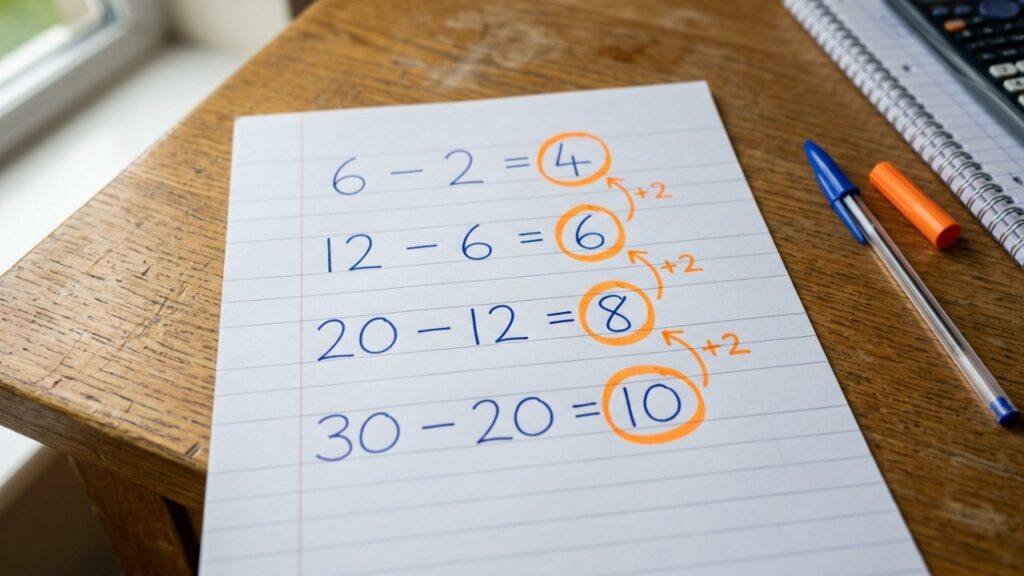 6 − 2 = 4
+2
12 − 6 = 6
+2
20 − 12 = 8
+2
30 − 20 = 10